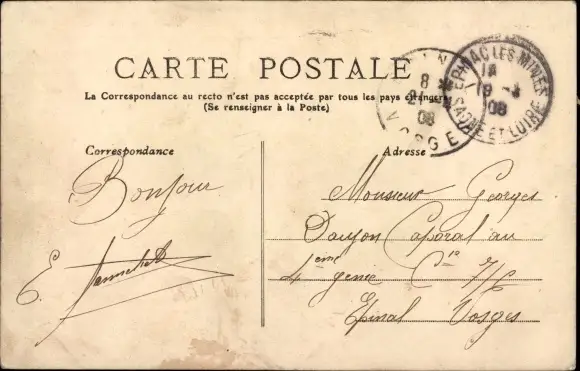 CARTE POSTALE
La Correspondance au recto n'est pas acceptée par tous les pays étrangers
(Se renseigner à la Poste)
EPINAC LES MINES
19 -3
08
SAONE ET LOIRE
8
21
08
VOSGES
Correspondance
Adresse
Bonjour
E.
Monsieur Georges
Caporal au
4ème génie Cie
Epinal Vosges